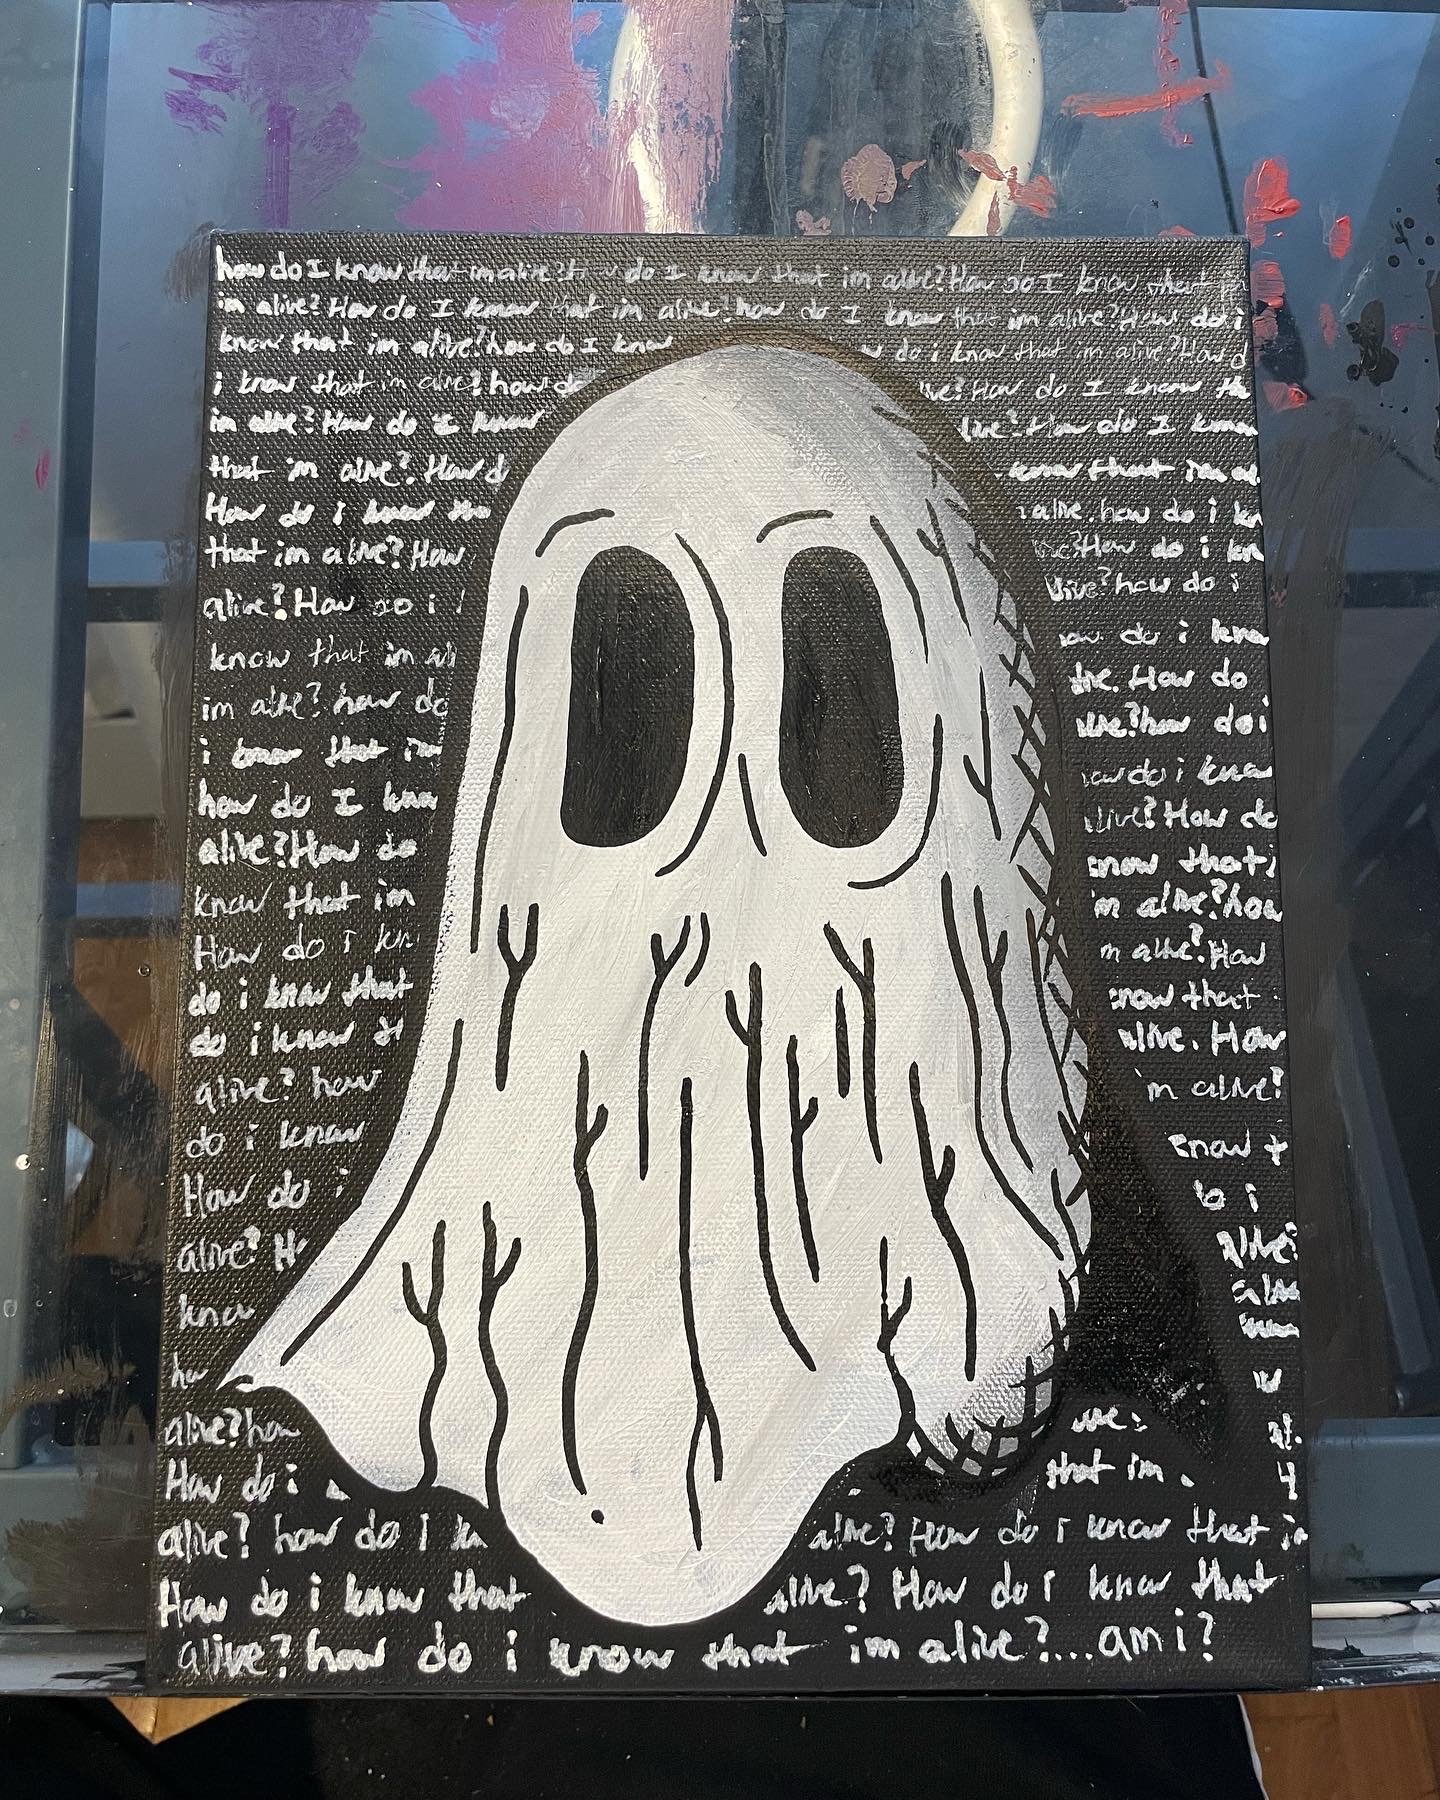 how do I know that im alive? do I know that im alive? How do I know that
im alive? How do I know that im alive? how do I know that im alive? How do i
know that im alive? how do I know do i know that im alive? How d
i know that im alive? how do ve? How do I know th
im alive? How do I know live? How do I know
that im alive? How d know that im al
How do i know tho alive. how do i kn
that im alive? How How do i kn
alive? How do i alive? how do i
know that im ali do i know
im alive? how do How do
i know that im alive? how do i
how do I kno how do i know
alive? How do alive? How do
know that im know that i
How do i kn im alive? how
do i know that m alive? How
do i know th now that
alive? how alive. How
do i know im alive?
How do i know t
alive? H do i
kno alive?
ho
alive? how
How do i that im
alive? how do i kn alive? How do i know that im
How do i know that alive? How do i know that
alive? how do i know that im alive?...am i?